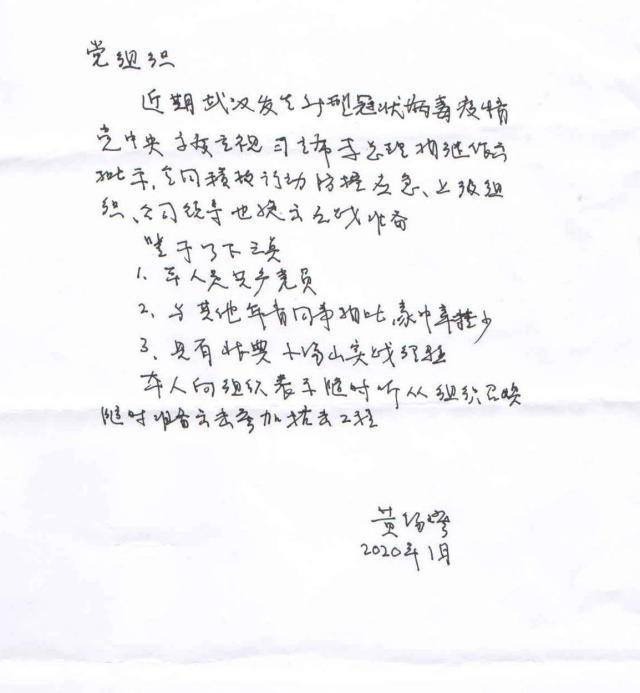 党组织
近期武汉发生新型冠状病毒疫情
党中央高度重视 习主席李总理相继作出
批示,全国积极行动 防控应急、上级组
织、公司领导也换
鉴于以下三点
1. 本人是共产党员
2. 与其他年青同事相比,家中牵挂少
3. 具有 小汤山实战经验
本人向组织表示随时听从组织召唤
随时准备出去参加 工程
黄
2020年1月